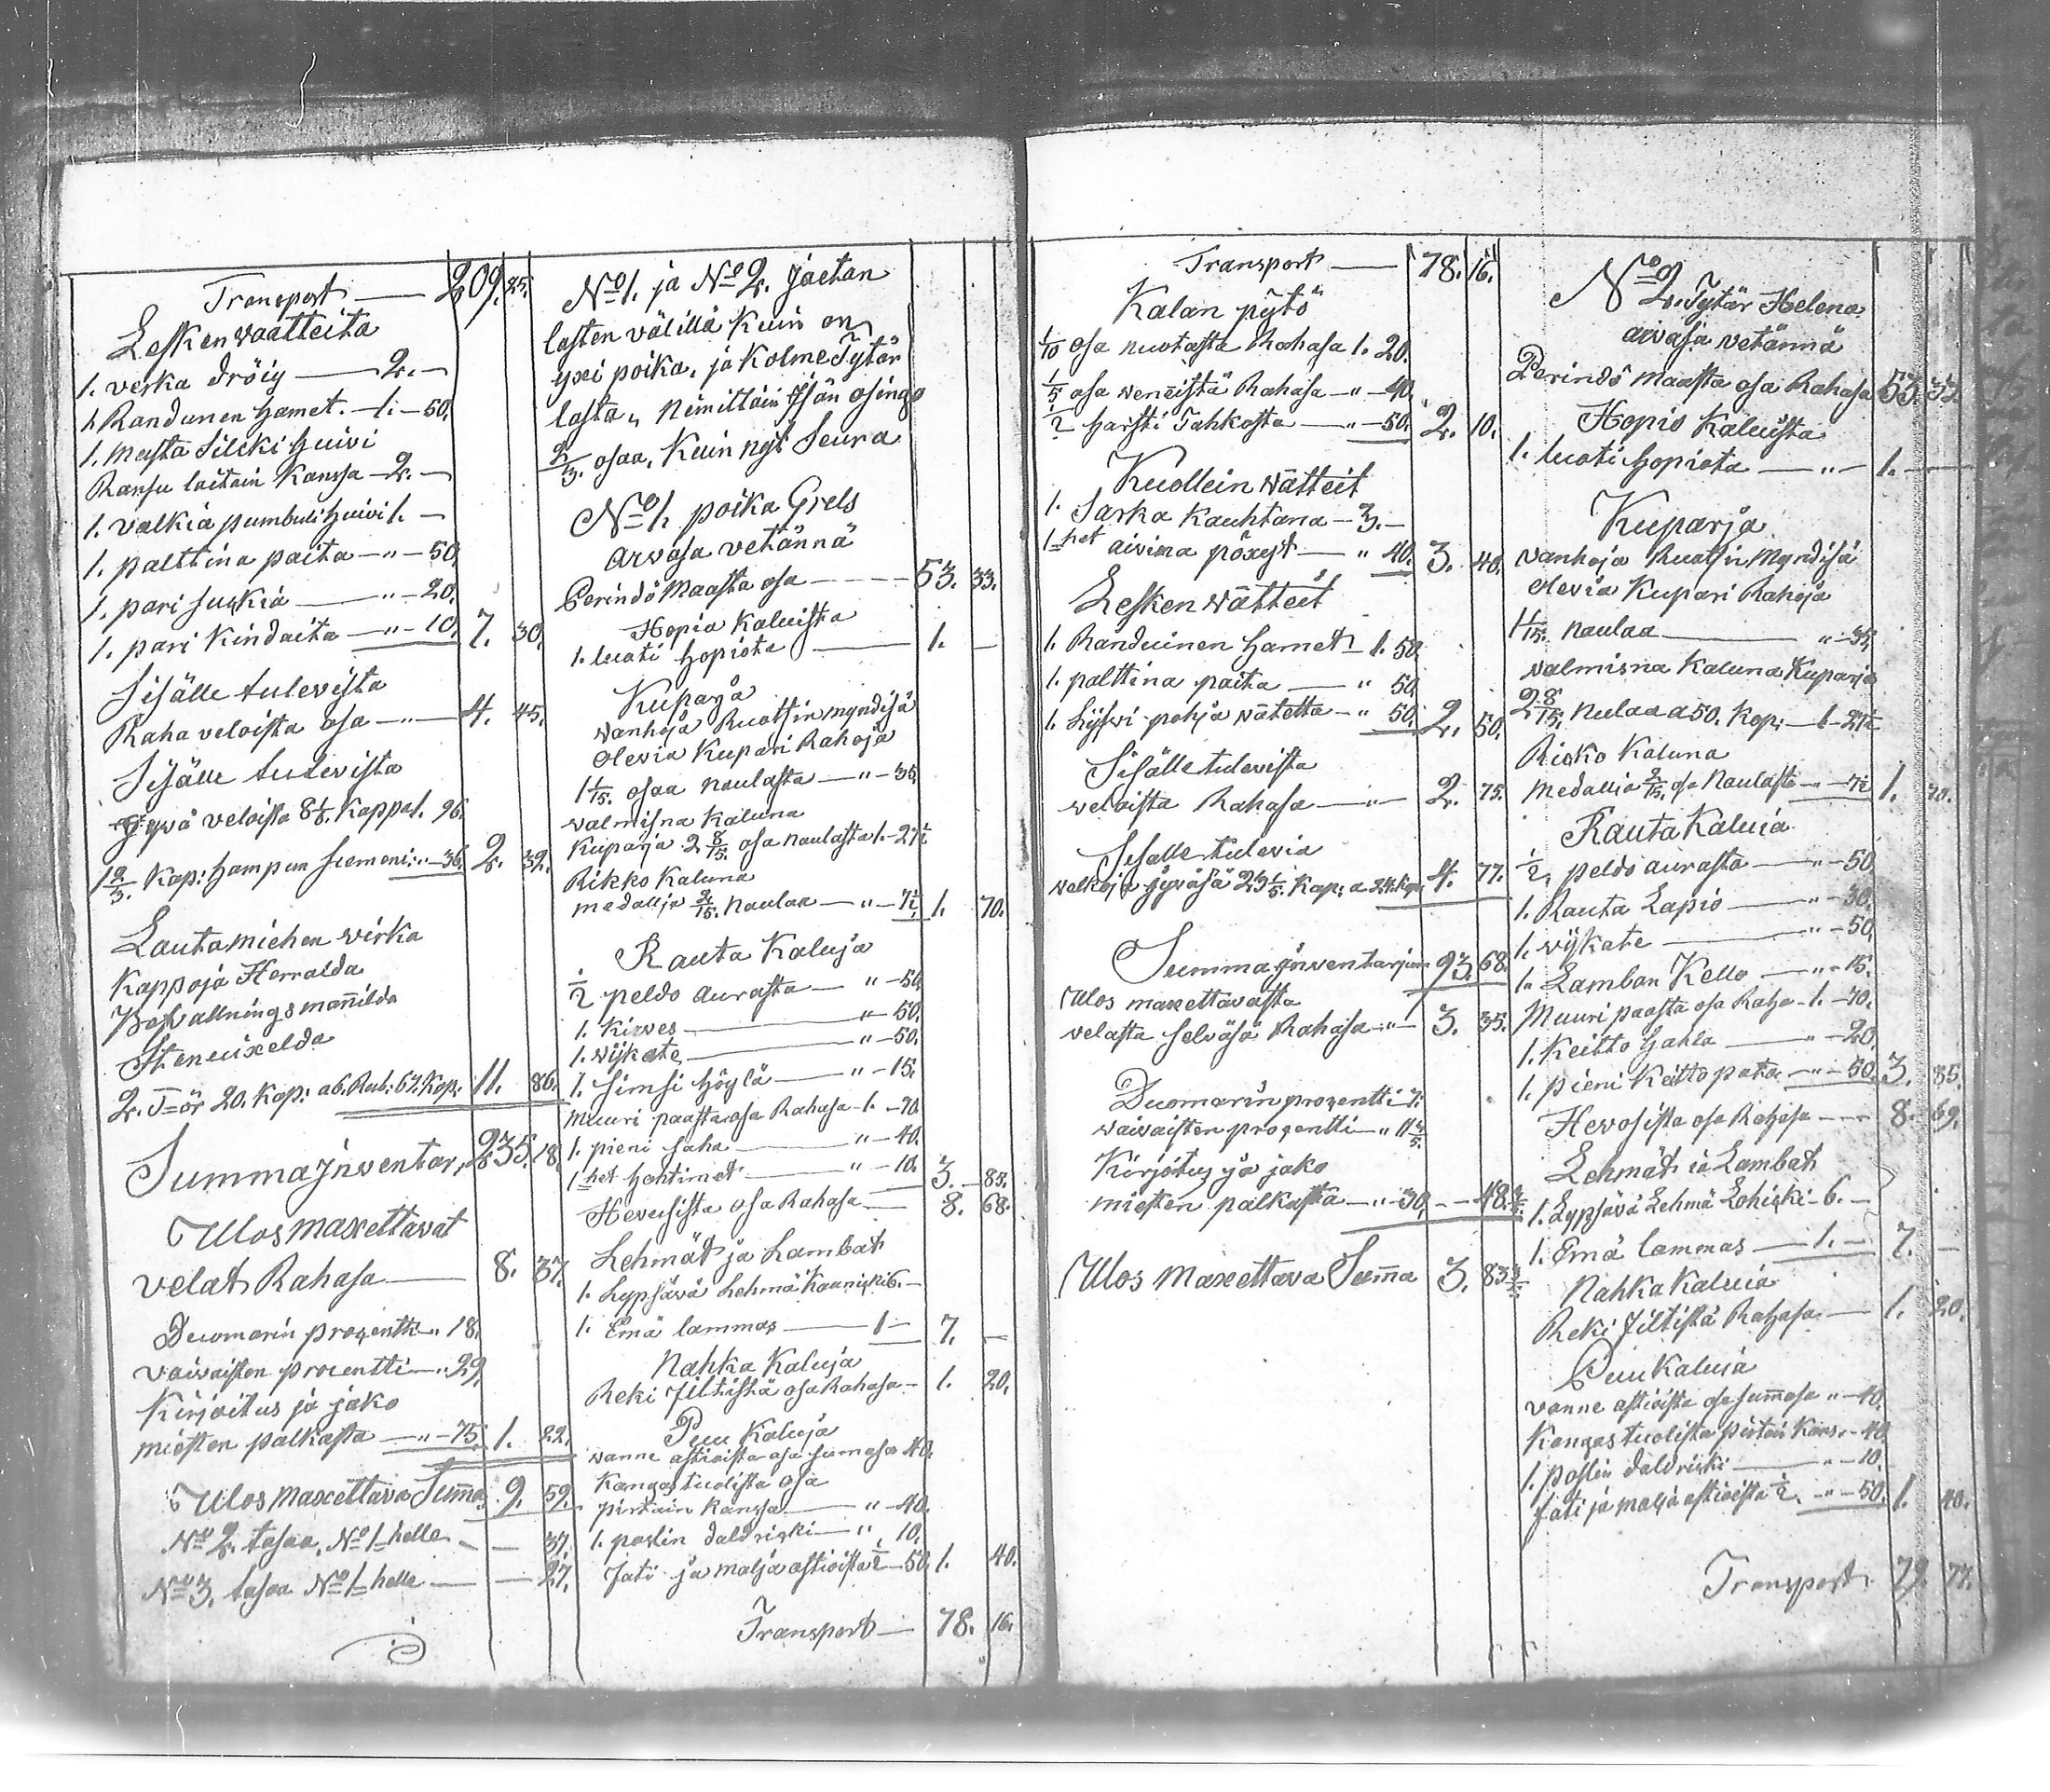 Transport — 209. 25.
Lesken waatteita
1. verka dröig — 2. —
1. Randunen hamet. — 1. — 50.
1. musta Silcki huivi
Ransu laitain Kanssa — 2. —
1. valkia pumbuli huivi 1. —
1. palttina paita — " — 50.
1. pari sukia — " — 20.
1. pari Kindaita — " — 10. 7. 30.
Sisälle tulevista
Raha veloista osa — " — 4. 45.
Sisälle tulevista
Jyvä veloista 8 1/8. Kappa 1. 96.
1 2/3. Kap: hampun siemeni " — 36. 2. 32.
Lautamiehen wirka
Kappoja Herralda
Befallningsmannilda
Stenuixelda
2. T=ör 20. Kap: a 6. Rub: 67. Kop: 11. 86.
Summa Jnventar, 235. 18.
Ulos maxettavat
velat Rahasa — 8. 37.
Duomarin prosentti " 18.
vaivaisten procentti — " 29.
Kirjoitus ja jako
miesten palkasta — " — 75. 1. 22.
Ulos maxettava Summa 9. 59.
No 2. tasaa, No 1=helle — — 37.
No 3. tasaa No 1=helle — — 27.
No 1. ja No 2. jaetan
lasten välillä Kuin on
yxi poika, ja Kolme Tytär
lasta, Nimittäin Isän osingo
2/3. osaa, Kuin nyt Seura
No 1. poika Grels
arvosa vetännä
Perindö Maasta osa — 53. 33.
Hopia Kaluista
1. luoti hopiota — 1. —
Kuparja
wanhoja Ruottin myndisä
olevia Kupari Rahoja
1 1/15. osaa naulasta — " — 35.
walmisna Kaluna
Kuparja 2 8/15. osa naulasta 1. — 27 1/2
Rikko Kaluna
medallja 2/15. naulaa — " — 7 1/2. 1. 70.
Rauta Kaluja
1/2 peldo aurasta — " — 50.
1. Kirves — " — 50.
1. wijkate — " — 50.
1. Simsi höylä — " — 15.
Muuri paasta osa Rahasa — 1. — 70.
1. pieni saha — " — 40.
1=het hohtimet — " — 10. 3. — 85.
Hevosista osa Rahasa — 8. 68.
Lehmät ja Lambat
1. Lypsävä Lehmä Kaaniski 6. —
1. Emä lammas — 1 — 7. —
Nahka Kaluja
Reki Jiltistä osa Rahasa — 1. 20.
Puu Kaluja
wanne astioista osa sumasa 40.
Kangas tuolista osa
pirtain kanssa — " — 40.
1. poslin daldriski — " 10.
Fati ja malja astioista 1/2 — 50. 1. 40.
Transport — 78. 16.
Transport — 78. 16.
Kalan pytö
1/10 osa nuotasta Rahasa 1. 20.
1/5 osa weneistä Rahasa — " — 40.
1/2 harsti Tahkosta — " — 50. 2. 10.
Kuollein wätteit
1. Sarka Kauhtana — 3. —
1=het aivina pöxyt — " 40. 3. 40.
Lesken Wätteit
1. Randuinen hamet — 1. 50.
1. palttina paita — " 50.
1. Lijswi pohja wätetta — " 50. 2. 50.
Sisälle tulevista
weloista Rahasa — " — 2. 75.
Sisälle tulevia
welkoja jyväsä 23 1/5. Kap: a 24. Kop. 4. 77.
Summa Jnventarjum 93. 68.
Ulos maxettavasta
velasta selväsä Rahasa — " — 3. 35.
Duomarin prosentti 7.
waivaisten prosentti — " 11 3/5.
Kirjoitus ja jako
miesten palkasta — " — 30. — 48 3/5.
Ulos maxettava Summa 3. 83 3/5.
No 2. Tytär Helena
arvosa vetännä
Perindö maasta osa Rahasa 53. 33.
Hopio Kaluista
1. luoti hopiota — " — 1. —
Kuparja
wanhoja Ruotin Myndisä
olevia Kupari Rahoja
1 1/15. naulaa — " — 35.
walmisna Kaluna Kuparja
2 8/15. nulaa a 50. Kop: — 1. — 27 1/2
Ricko Kaluna
medallia 2/15. osa Naulasta — " — 7 1/2 1. 70.
Rauta Kaluia
1/2. peldo aurasta — " — 50.
1. Rauta Lapio — " — 30.
1. wijkate — " — 50.
1. Lamban Kello — " — 15.
Muuri paasta osa Raha — 1. — 70.
1. Keitto hahla — " — 20.
1. pieni Keitto pata — " — 50. 3. 85.
Hevosista osa Rahasa — 8. 69.
Lehmät ja Lambat
1. Lypsävä Lehmä Lohiski — 6. —
1. Emä lammas — 1. — 7. —
Nahka Kaluia
Reki Jiltistä Rahasa — 1. 20.
Puu Kaluia
vanne astioista osa summasa " — 40.
Kangas tuolista pirtain Kans. — 40.
1. poslin daldriski — " — 10.
Fati ja malja astioista 1/2. — " — 50. 1. 40.
Transport 79. 77.